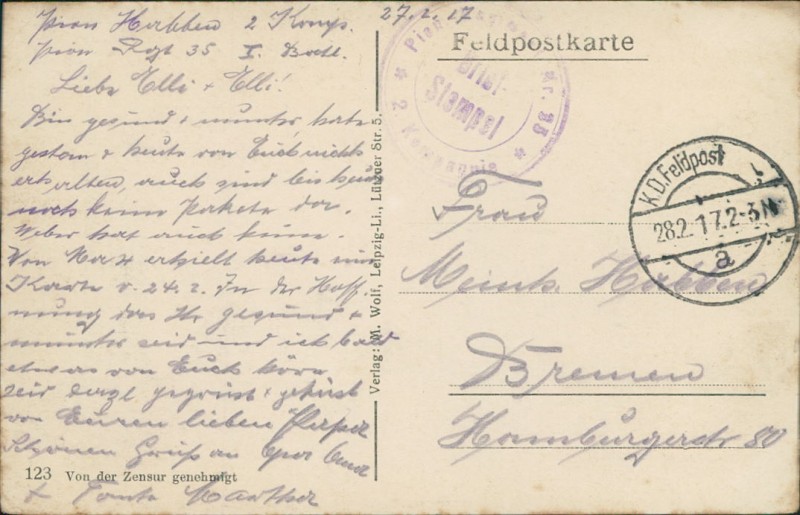 27.2.17
Pion Habben 2 Komp.
Pion Rgt 35 I. Batl.
Liebe Elli + Elli!
Bin gesund + munter, habe
gestern + heute von Euch nichts
erhalten, auch sind bis heute
noch keine Pakete da.
Weber hat auch keine.
Von Max erhielt heute eine
Karte v. 24.2. In der Hoff-
nung das Ihr gesund +
munter seid und ich bald
etwas von Euch höre
seid herzl gegrüst + geküst
von Euren lieben Papa
Schönen Gruß an Opa
+ Tante Martha
123 Von der Zensur genehmigt
Verlag: M. Wolf, Leipzig-Li., Lützner Str. 5.
Feldpostkarte
Brief-
Stempel
Nr. 35
* 2 Kompagnie *
K.D. Feldpost
28.2.17.2-3N
a
Frau
Meinh. Habben
Bremen
Hamburgerstr 80